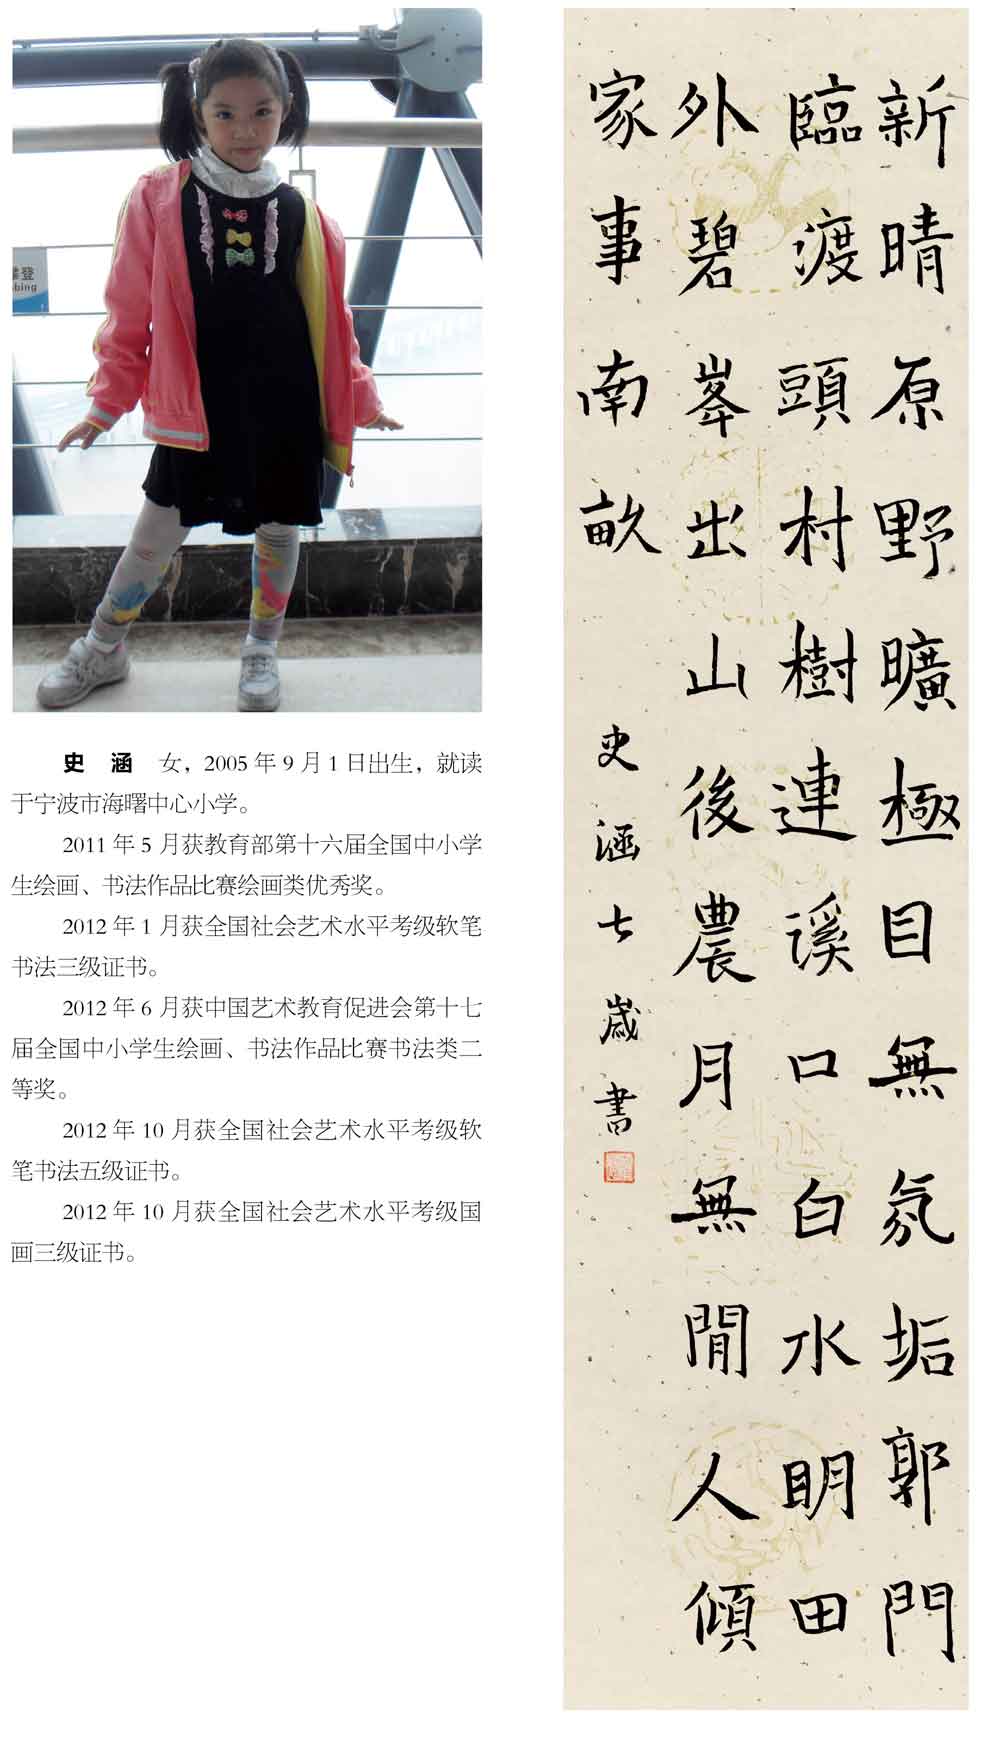 攀登
bing
史 涵 女，2005 年 9 月 1 日出生，就读
于宁波市海曙中心小学。
2011 年 5 月获教育部第十六届全国中小学
生绘画、书法作品比赛绘画类优秀奖。
2012 年 1 月获全国社会艺术水平考级软笔
书法三级证书。
2012 年 6 月获中国艺术教育促进会第十七
届全国中小学生绘画、书法作品比赛书法类二
等奖。
2012 年 10 月获全国社会艺术水平考级软
笔书法五级证书。
2012 年 10 月获全国社会艺术水平考级国
画三级证书。
新晴原野曠極目無氛垢郭門
臨渡頭村樹連溪口白水明田
外碧峯出山後農月無閒人傾
家事南畝
史涵七歲書